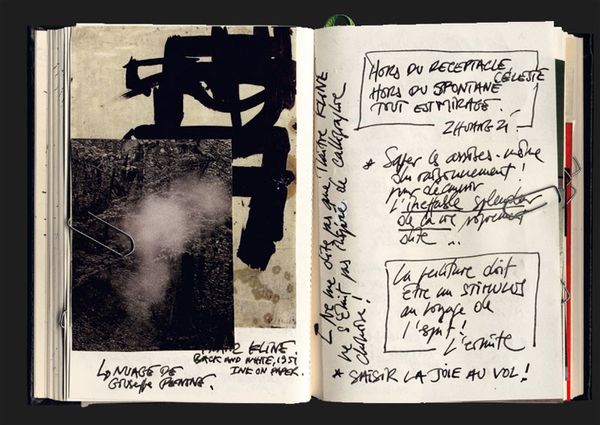 FRANZ KLINE
BACK AND WHITE, 1951
INK ON PAPER.
NUAGE DE
GIUSEPPE PENONE.
Ne me dites pas que Maître KLINE
ne s'était pas inspiré de calligraphie
chinoise!
HORS DU RECEPTACLE
CÉLESTE
HORS DU SPONTANÉ
TOUT EST MIRAGE.
ZHUANGZI
* Saper les assises-même
du raisonnement!
pour découvrir
l'ineffable splendeur
de la vie proprement
dite ...
La peinture doit
être un STIMULUS
au voyage de
l'esprit!
L'ermite
* SAISIR LA JOIE AU VOL!